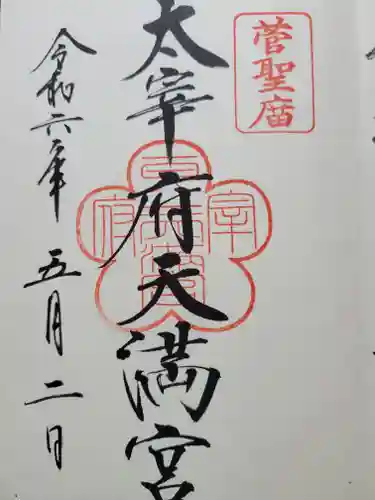 菅聖庿
太宰府天満宮
令和六年五月二日